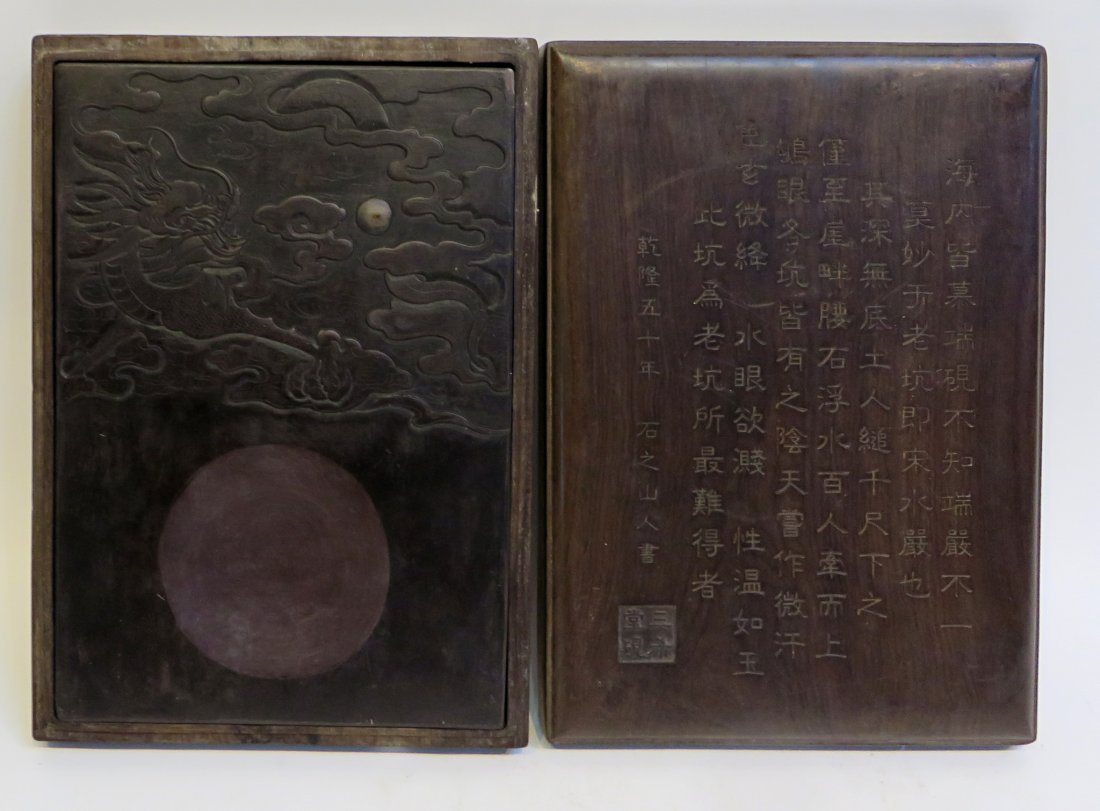 海内皆慕端硯不知端嚴不一
莫妙于老坑即宋水嚴也
其深無底土人縋千尺下之
僅至崖畔腰石浮水百人牽而上
眼各坑皆有之陰天嘗作微汗
色玄微絳 水眼欲濺 性温如玉
此坑爲老坑所最難得者
乾隆五十年 石之山人書
三希堂硯